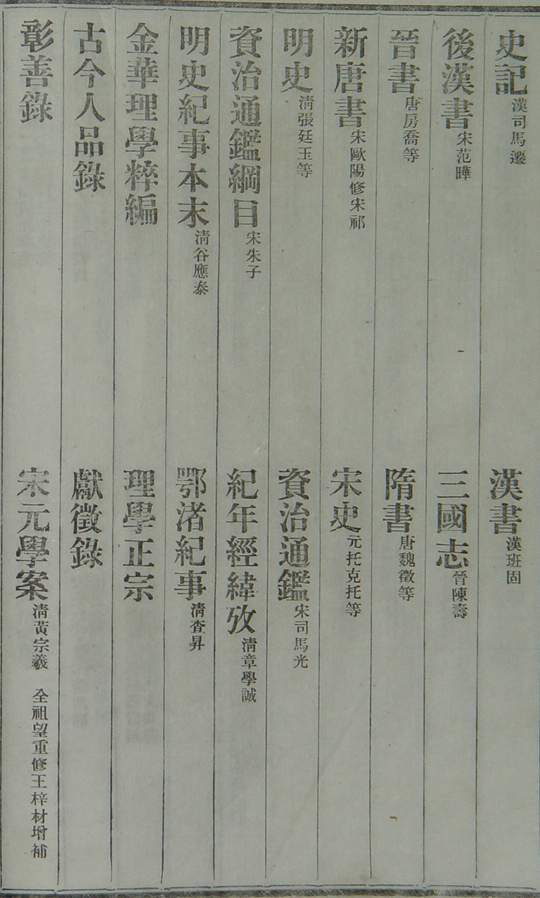 史記 漢司馬遷 漢書 漢班固
後漢書 宋范曄 三國志 晉陳壽
晉書 唐房喬等 隋書 唐魏徵等
新唐書 宋歐陽修宋祁 宋史 元托克托等
明史 清張廷玉等 資治通鑑 宋司馬光
資治通鑑綱目 宋朱子 紀年經緯攷 清章學誠
明史紀事本末 清谷應泰 鄂渚紀事 清查昇
金華理學粹編 理學正宗
古今人品錄 獻徵錄
彰善錄 宋元學案 清黃宗羲 全祖望重修王梓材增補